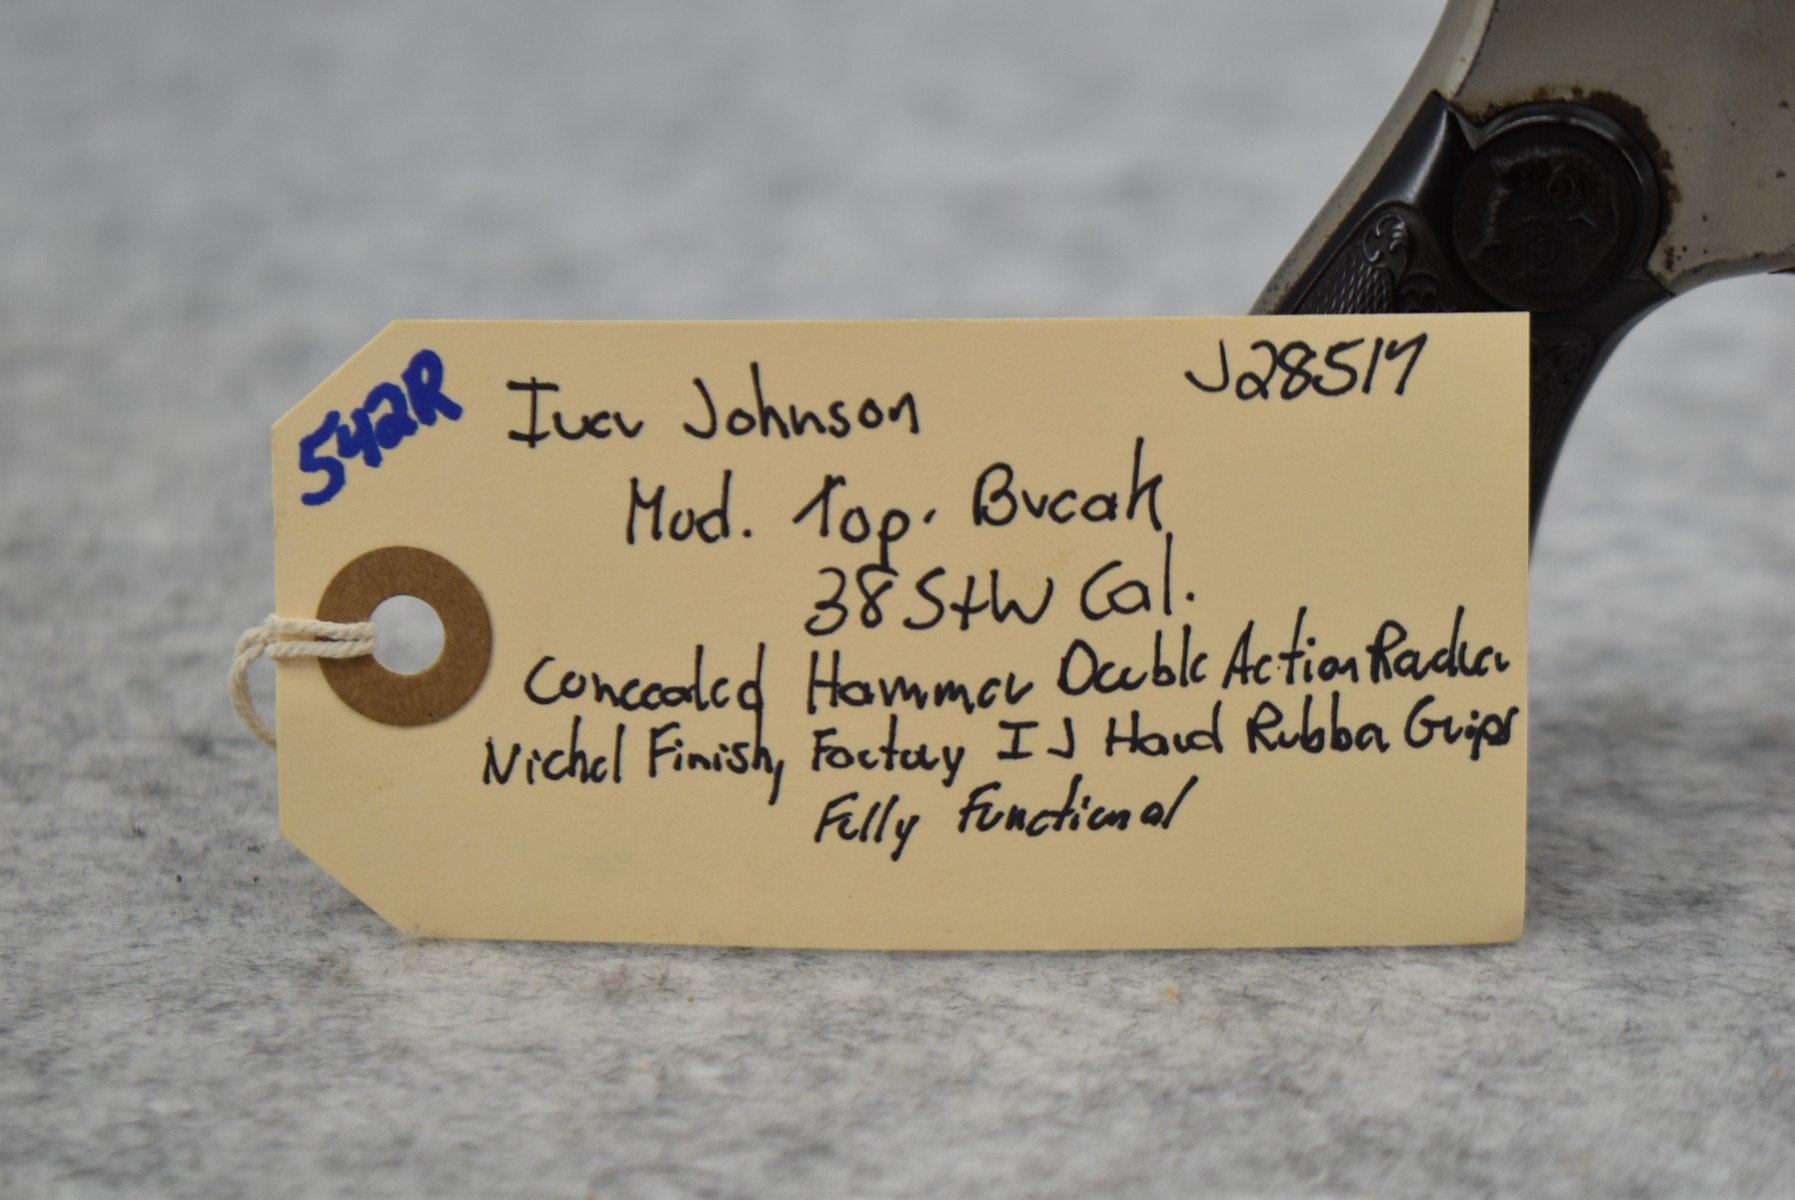 542R
Iver Johnson J28517
Mod. Top. Break
38 S+W Cal.
Concealed Hammer Double Action
Nickel Finish, Factory IJ Hard Rubber Grips
Fully Functional